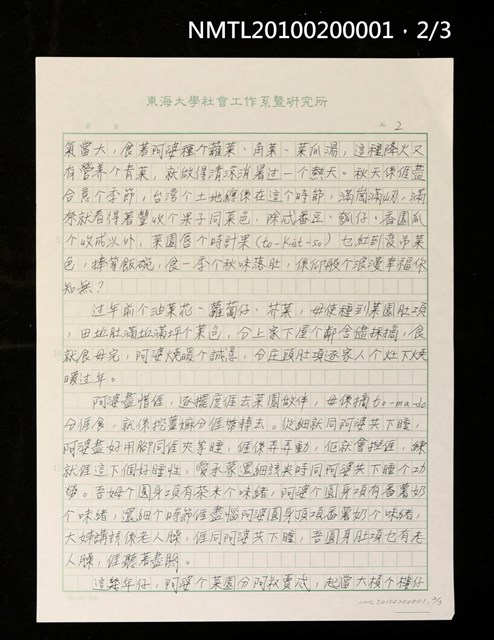 NMTL20100200001，2/3
東海大學社會工作系暨研究所
2
氣當大，食著阿婆種个蘿菜、角菜、菜瓜湯，這種降火又
有營养个青菜，就做得清涼消暑过一个熱天。秋天係𠊎盡
合意个季節，台灣个土地總係在這个時節，滿崗滿㘭，滿
奈就看得著豐收个果子同菜色，除忒番豆、瓠仔、香園瓜
个收成以外，菜園唇个時計果（to-kát-so）乜紅到發吊菜
色，捧等飯碗，食一季个秋味落肚，係仰般个浪漫幸福你
知無？
过年前个油菜花、蘿蔔仔、芥菜，毋使種到菜園肚項
，田地肚滿地滿坪个菜色，分上家下屋个鄰舍儘採摘，食
就食毋完，阿婆燒暖个誠意，分庄頭肚項逐家人个灶下燒
暖过年。
阿婆盡惜𠊎，逐擺度𠊎去菜園做伴，毋係摘to-ma-do
分𠊎食，就係挖薑嫲分𠊎帶轉去。從細就同阿婆共下睡，
阿婆盡好用腳同𠊎夾等睡，𠊎係弄弄動，佢就會捏𠊎，練
就𠊎這下个好睡性，愛承蒙還細該央時同阿婆共下睡个功
勞。吾姆个圓身項有茶米个味緒，阿婆个圓身項有番薯奶
个味緒，還細个時節𠊎盡惱阿婆圓身頂項番薯奶个味緒，
大姊講該係老人臊，𠊎同阿婆共下睡，吾圓身肚項乜有老
人臊，𠊎聽著盡𤸁。
這幾年仔，阿婆个菜園分阿叔賣忒，起當大楨个樓仔
NMTL20100200001, 2/3